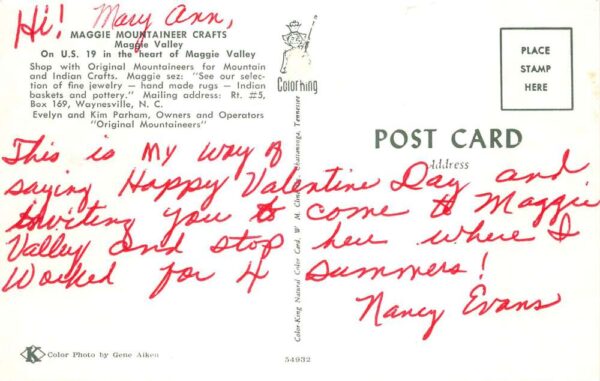 Hi! Mary Ann,
MAGGIE MOUNTAINEER CRAFTS
Maggie Valley
On U.S. 19 in the heart of Maggie Valley
Shop with Original Mountaineers for Mountain
and Indian Crafts. Maggie sez: "See our selec-
tion of fine jewelry — hand made rugs — Indian
baskets and pottery." Mailing address: Rt. #5,
Box 169, Waynesville, N. C.
Evelyn and Kim Parham, Owners and Operators
"Original Mountaineers"
ColorKing
PLACE
STAMP
HERE
POST CARD
Address
This is My way of
saying Happy Valentine Day and
inviting you to come to Maggie
Valley and stop here where I
Worked for 4 summers!
Nancy Evans
Color-King Natural Color Card, W. M. Cline Co., Chattanooga, Tennessee
K Color Photo by Gene Aiken
54932